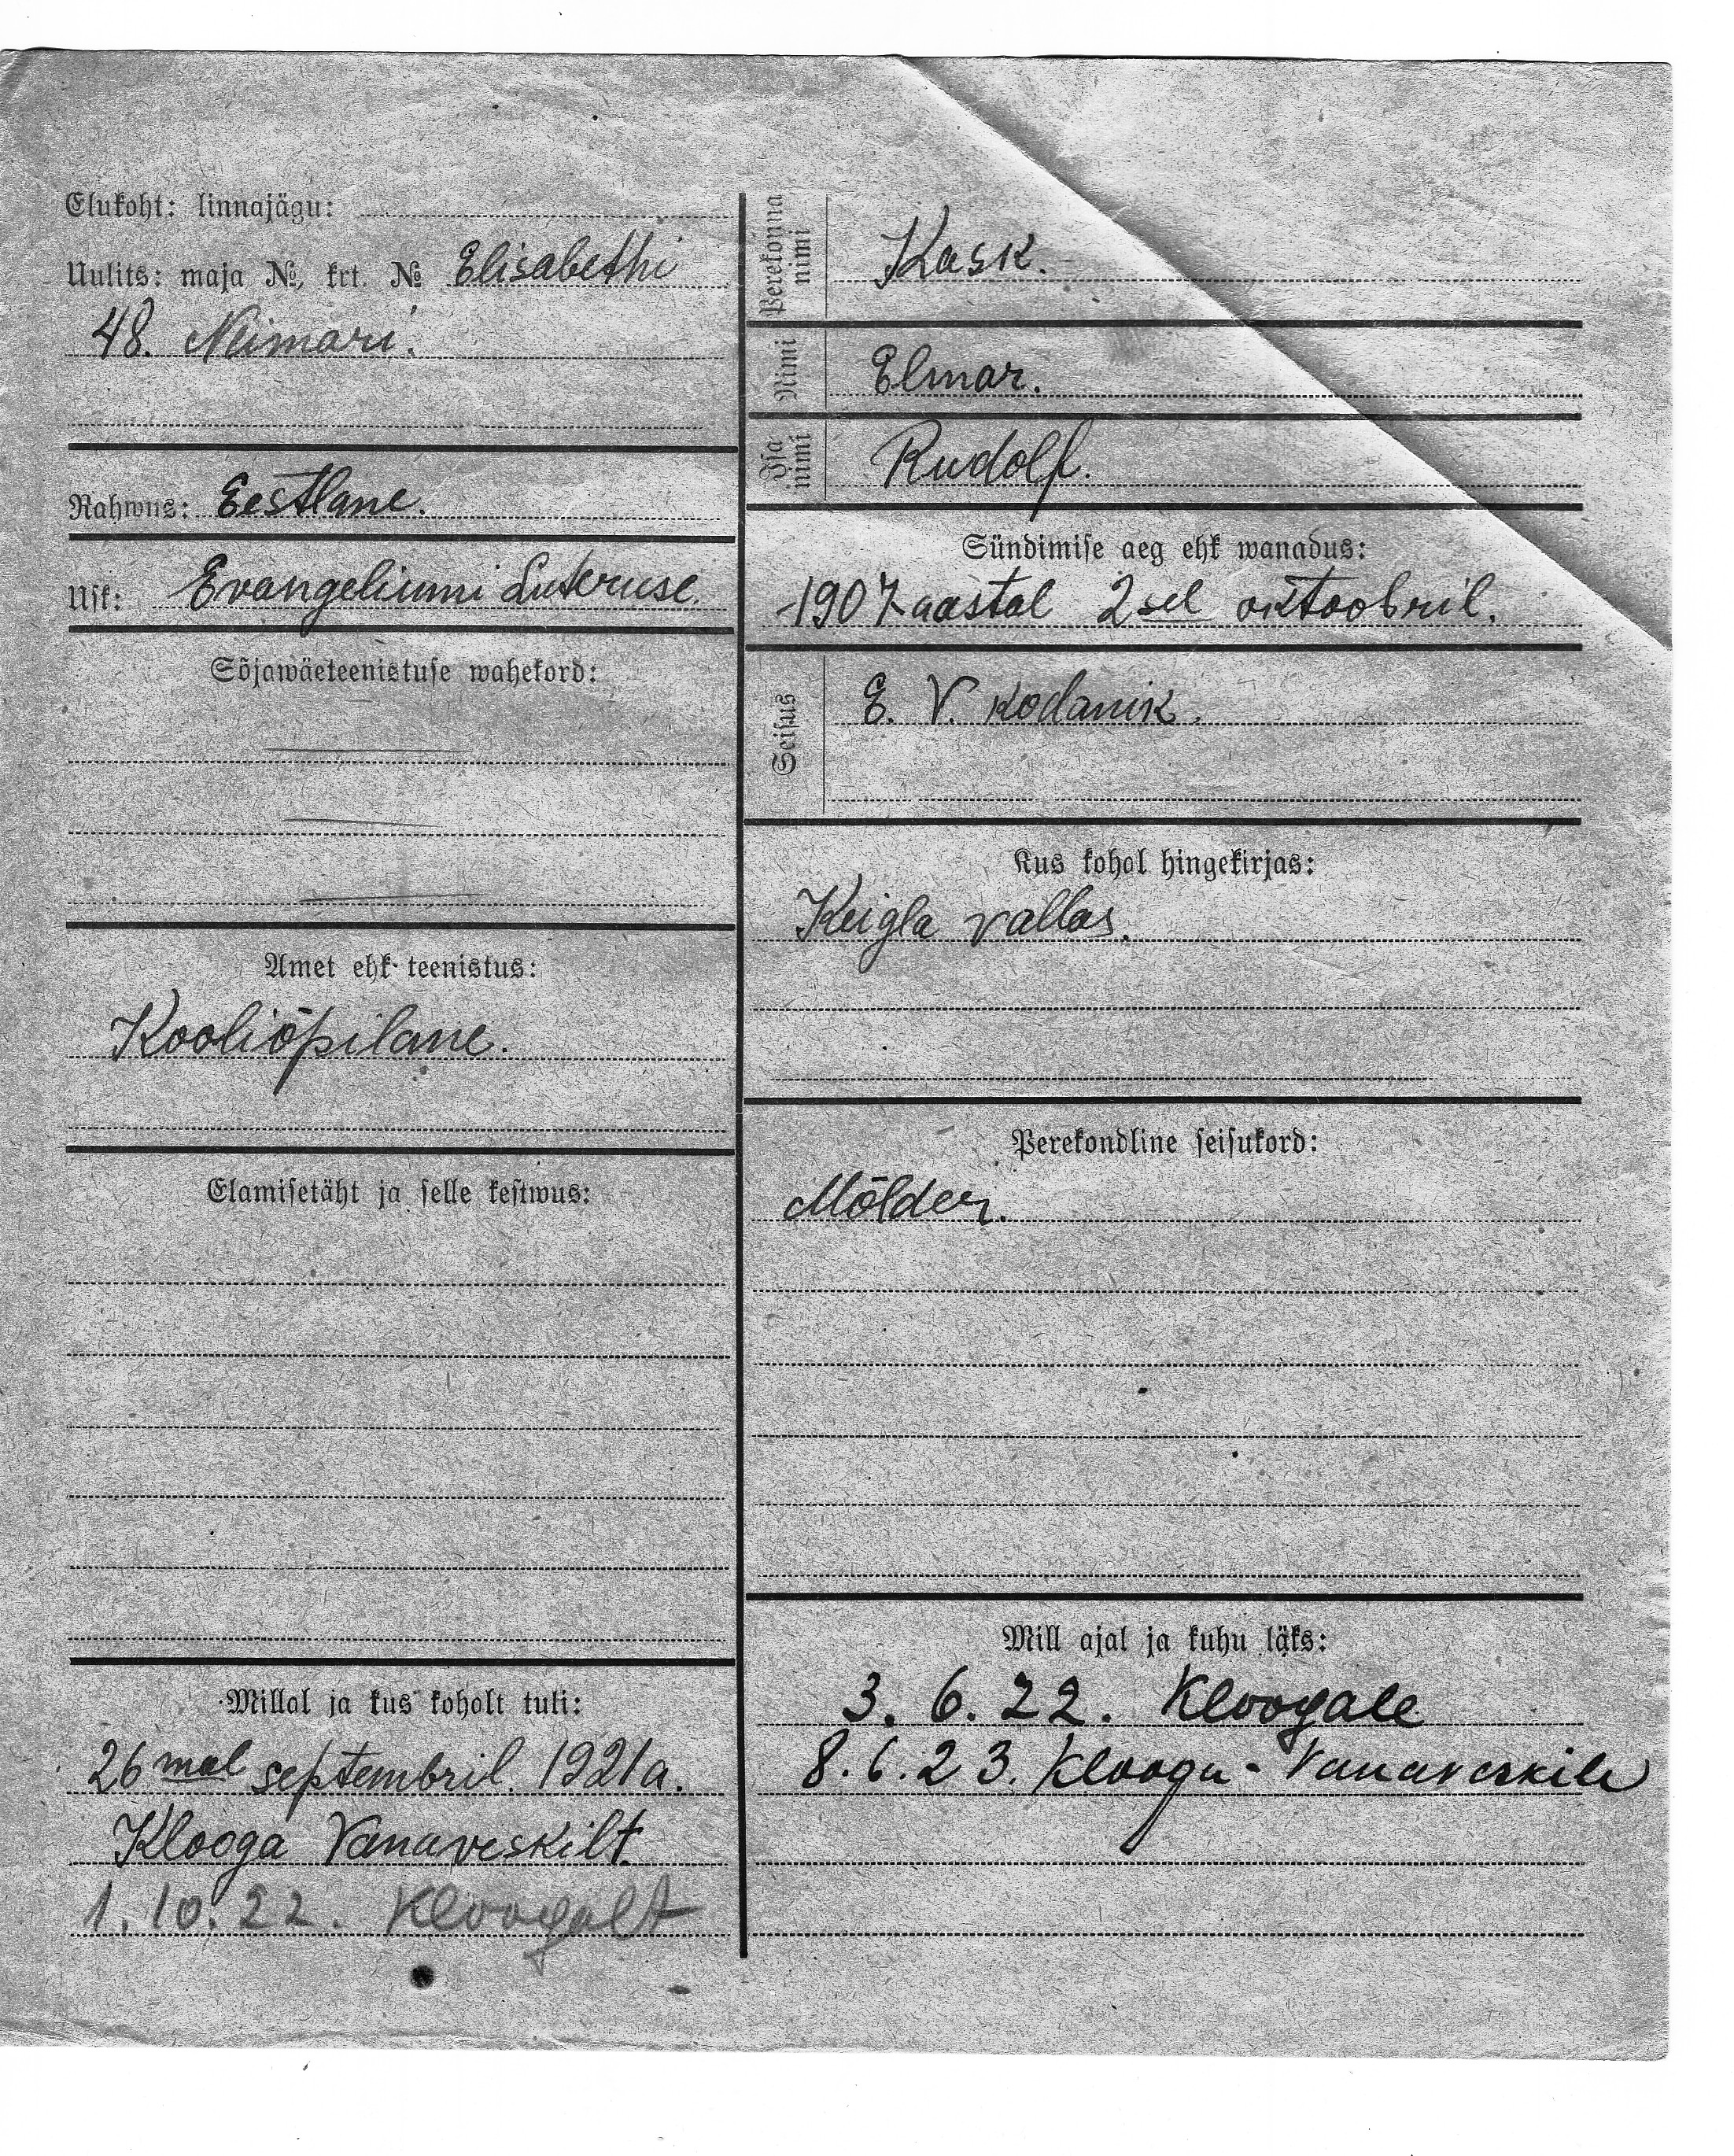 Elukoht: linnajägu:
Uulits: maja №, krt. № Elisabethi
48. Neimari.
Rahwus: Eestlane.
Usk: Evangeliumi Luteruse.
Sõjawäeteenistuse wahekord:
Amet ehk teenistus:
Kooliõpilane.
Elamisetäht ja selle kestwus:
Millal ja kus koholt tuli:
26 mal septembril. 1921 a.
Klooga Vanaveskilt.
1. 10. 22. Kloogalt
Perekonna nimi
Kask.
Nimi
Elmar.
Isa nimi
Rudolf.
Sündimise aeg ehk wanadus:
1907 aastal 2sel oktoobril.
Seisus
E. V. kodanik.
Kus kohal hingekirjas:
Keigla vallas.
Perekondline seisukord:
Mölder.
Mill ajal ja kuhu läks:
3. 6. 22. Kloogale
8. 6. 23. Klooga-Vanaveskile